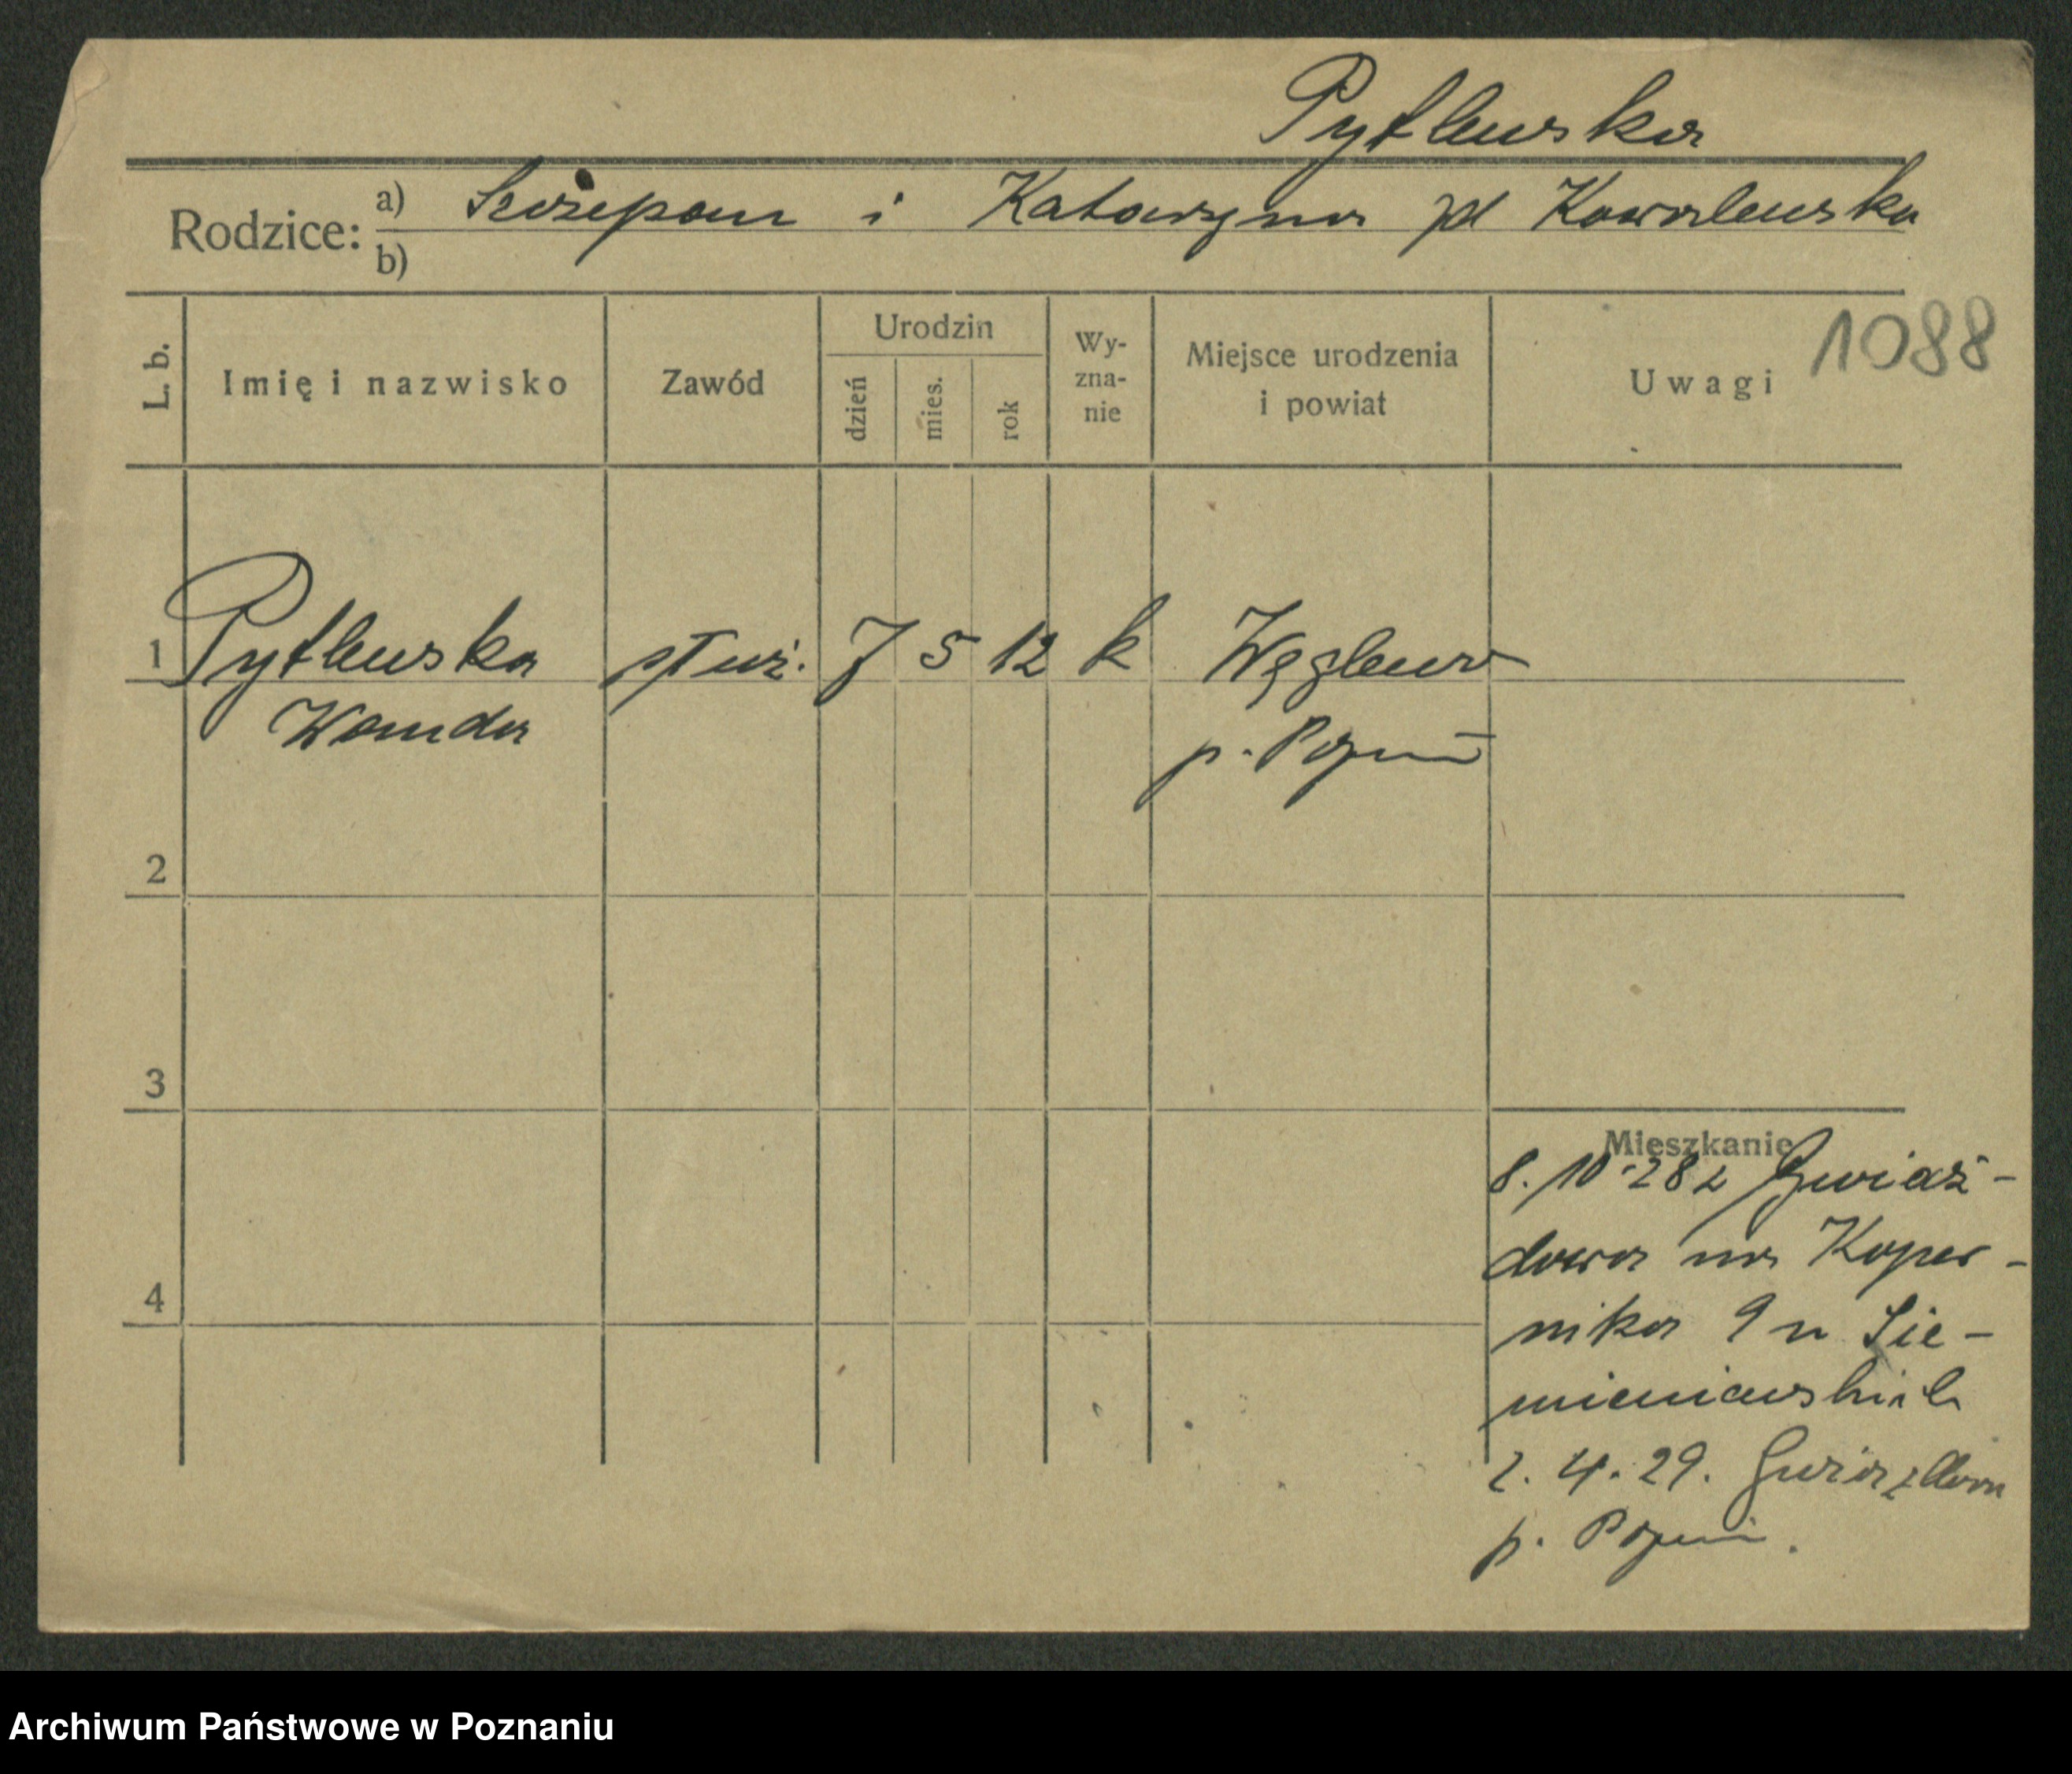 Pytlewska
Rodzice: a) Szczepan i Katarzyna zd Kowalewska
b)
L. b. Imię i nazwisko Zawód Urodzin dzień mies. rok Wy-zna-nie Miejsce urodzenia i powiat Uwagi 1088
1 Pytlewska służ. 7 5 12 k Węglewo
Wanda p. Pozn
2
3
4
Mieszkanie
8.10.28 z Gwiaź-
dowa na Koper-
nika 9 u Sie-
mieniewskich
2.4.29. Gwiazdowo
p. Pozn.
Archiwum Państwowe w Poznaniu